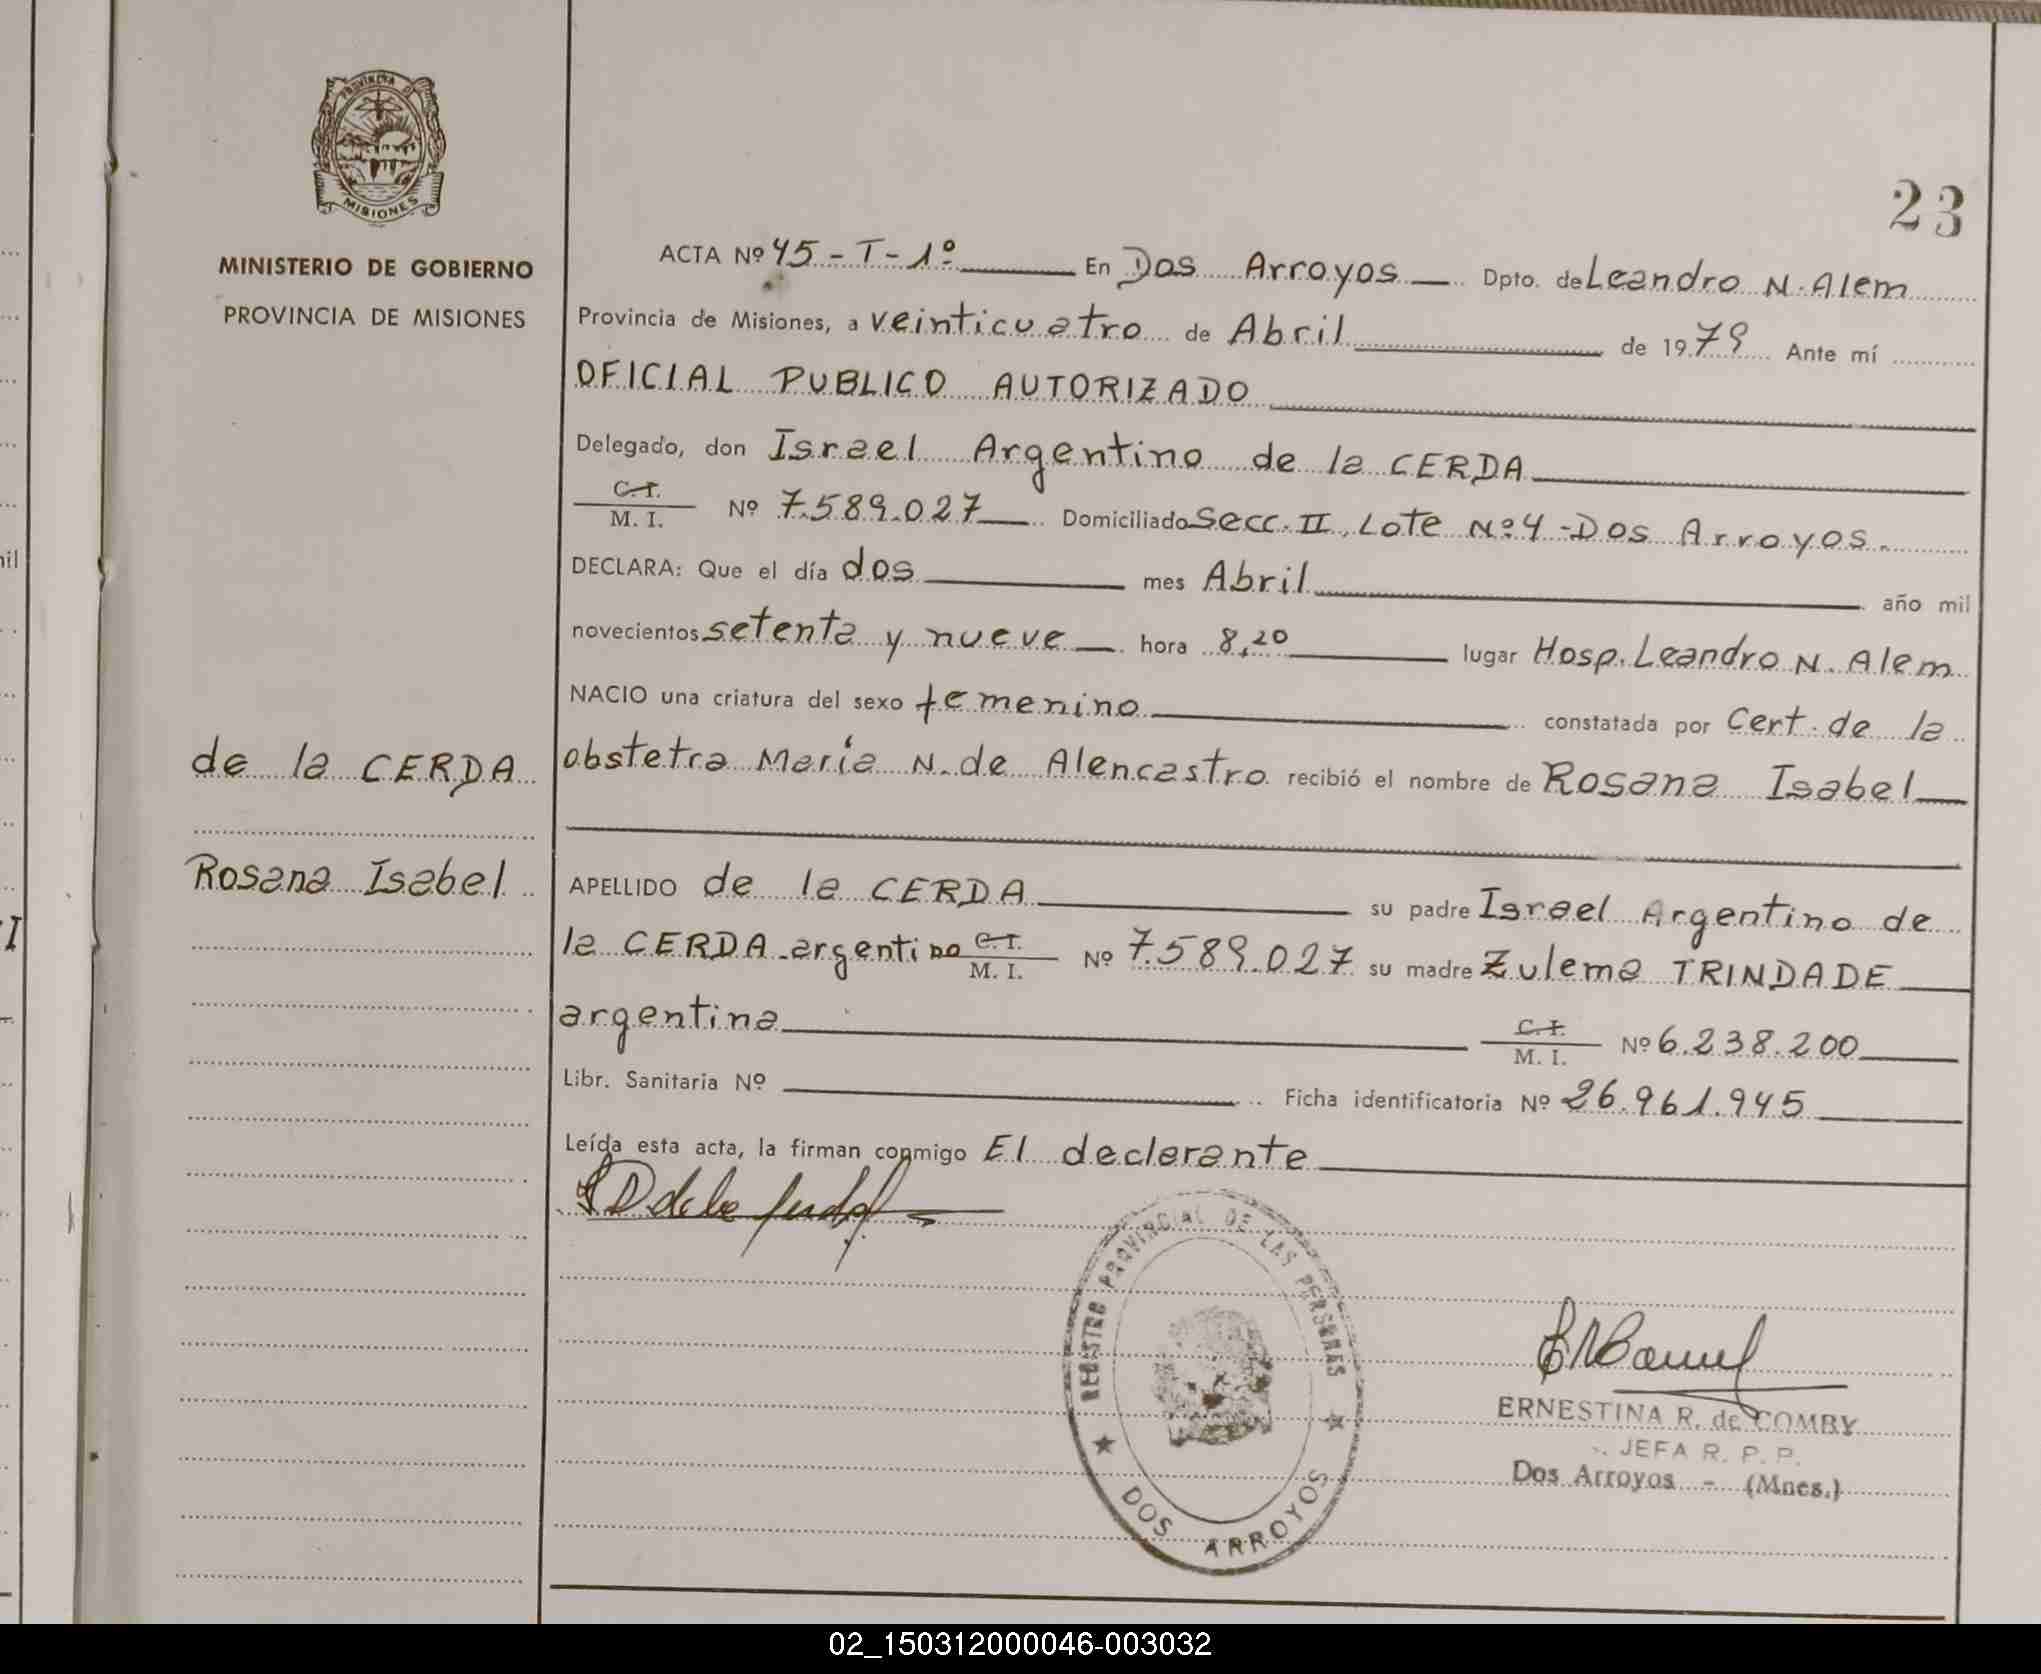 PROVINCIA DE
MISIONES
MINISTERIO DE GOBIERNO
PROVINCIA DE MISIONES
23
ACTA Nº 45 - T - 1º En Dos Arroyos Dpto. de Leandro N. Alem
Provincia de Misiones, a veinticuatro de Abril de 1979 Ante mí
OFICIAL PUBLICO AUTORIZADO
Delegado, don Israel Argentino de la CERDA
C. I.
M. I. Nº 7.589.027 Domiciliado Secc. II, Lote Nº 4 - Dos Arroyos.
DECLARA: Que el día dos mes Abril año mil
novecientos setenta y nueve hora 8,20 lugar Hosp. Leandro N. Alem
NACIO una criatura del sexo femenino constatada por Cert. de la
de la CERDA
obstetra María N. de Alencastro recibió el nombre de Rosana Isabel
Rosana Isabel
APELLIDO de la CERDA su padre Israel Argentino de
la CERDA - argentino C. I. M. I. Nº 7.589.027 su madre Zulema TRINDADE
argentina C. I. M. I. Nº 6.238.200
Libr. Sanitaria Nº Ficha identificatoria Nº 26.961.945
Leída esta acta, la firman conmigo El declarante
REGISTRO PROVINCIAL DE LAS PERSONAS
DOS ARROYOS
ERNESTINA R. de COMBY
JEFA R. P. P.
Dos Arroyos - (Mnes.)
02_150312000046-003032